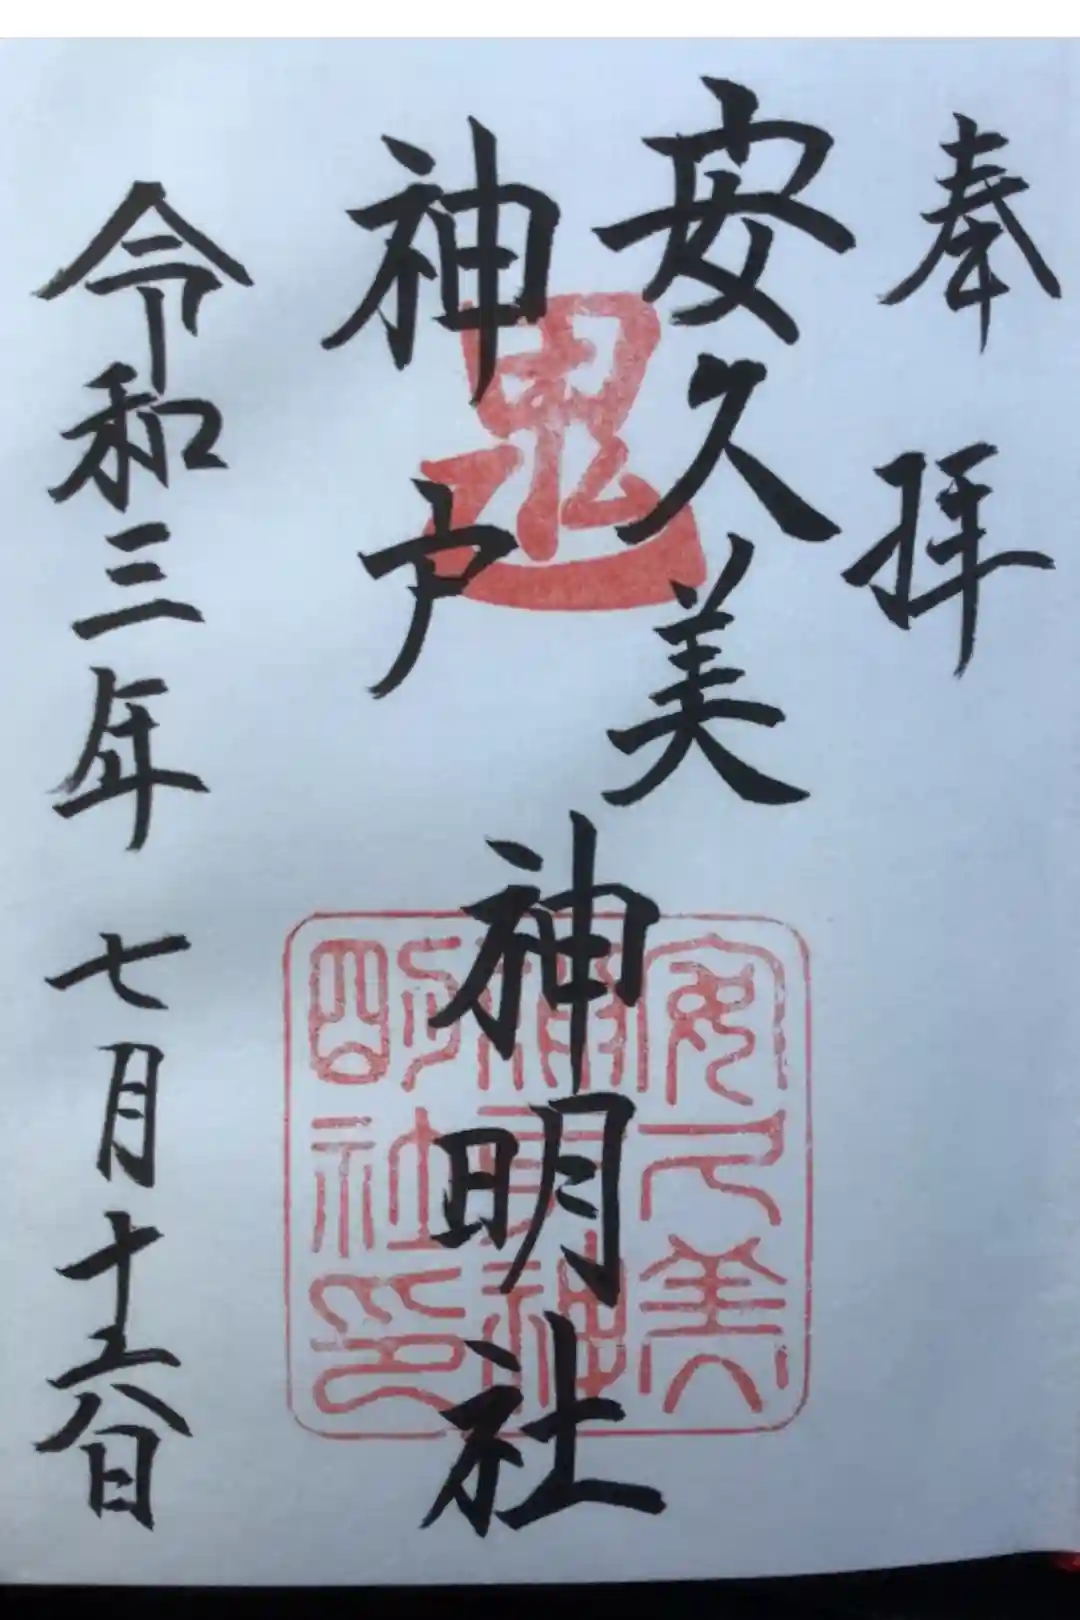 奉拝
安久美
神戸
神明社
令和三年七月十六日
鬼
安久美
神戸神
明社印